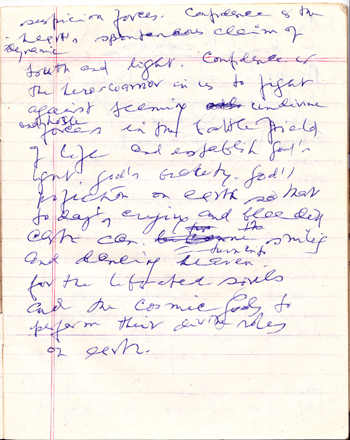 suspicion forces. Confidence is the
heart's spontaneous claim of
dynamic
truth and light. Confidence is
the hero-warrior in us to fight
against teeming undivine
and hostile
forces in the battle field
of life and establish God's
light, God's God's
perfection on earth so that
today's crying and bleeding
earth can turn into the smiling
and dancing heaven
for the liberated souls
and the cosmic gods to
perform their divine roles
on earth.